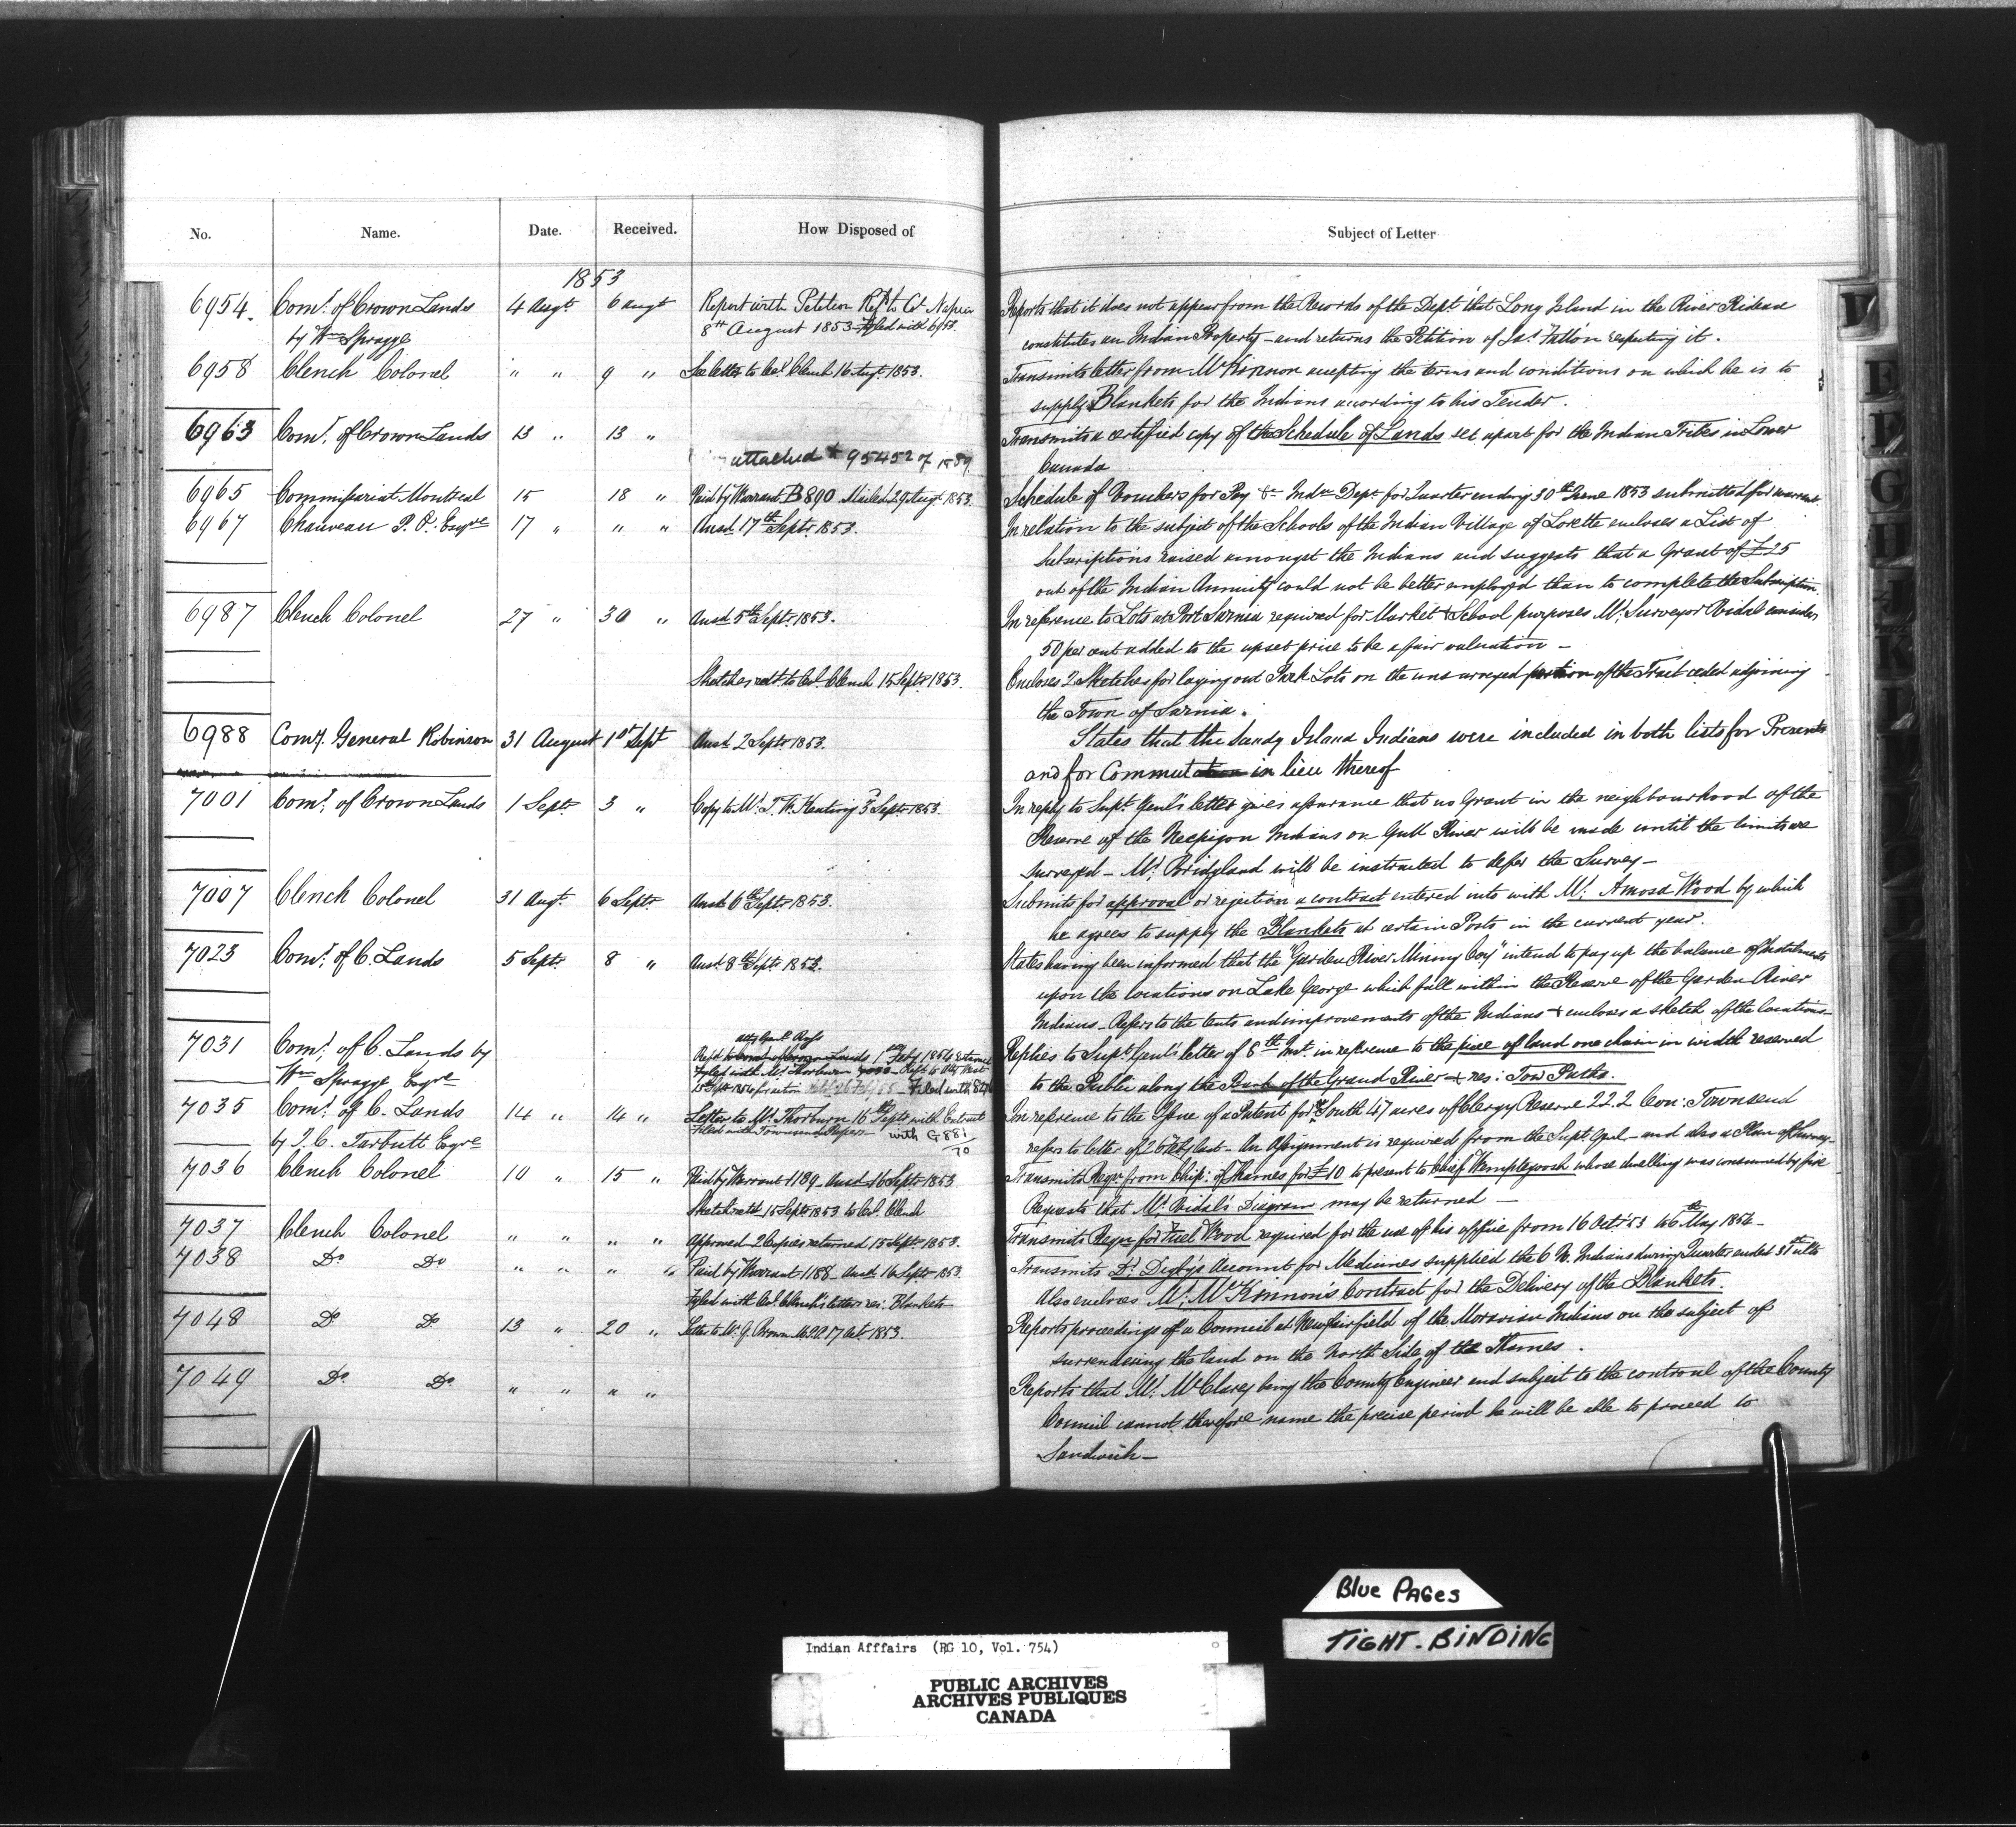 No. Name. Date. Received. How Disposed of Subject of Letter
1853
6954. Comr. of Crown Lands 4 Augt. 6 augt Report with Petition Refd to Col Napier Reports that it does not appear from the Records of the Dept. that Long Island in the River Rideau
by Wm Spragge 8th August 1853 Filed with 6958. constitutes an Indian Property - and returns the Petition of Jas. Fallon respecting it.
6958 Clench Colonel " " 9 " See letter to Col. Clench 16 Augt. 1853. Transmits letter from Mr Kinnon accepting the terms and conditions on which he is to
supply Blankets for the Indians according to his Tender.
6963 Comr. of Crown Lands 13 " 13 " Transmits a certified copy of the Schedule of Lands set apart for the Indian Tribes in Lower
attached to 95452 of 1889 Canada
6965 Commissariat Montreal 15 18 " Paid by Warrant B890 Mailed 29 Augt. 1853 Schedule of Vouchers for Pay &c Indn Dept. for Quarter ending 30th June 1853 submitted for warrant
6967 Chauveau P. O. Esqre 17 " " " Ansd. 17th Septr. 1853. In relation to the subject of the Schools of the Indian Village of Lorette encloses a List of
Subscriptions raised amongst the Indians and suggests that a Grant of £25
out of the Indian Annuity could not be better employed than to complete the Subscription
6987 Clench Colonel 27 " 30 " Ansd. 5th Septr. 1853. In reference to Lots at Port Sarnia required for Market & School purposes Mr. Surveyor Vidal considers
50 per cent added to the upset price to be a fair valuation -
Sketches retd. to Col. Clench 15 Septr 1853. Encloses 2 Sketches for laying out Park Lots on the unsurveyed portion of the Tract ceded adjoining
the Town of Sarnia.
6988 Comy. General Robinson 31 August 1st Sept Ansd. 2 Septr 1853. States that the Sandy Island Indians were included in both lists for Presents
and for Commutation in lieu thereof
7001 Comr. of Crown Lands 1 Septr 3 " Copy to Mr. T. W. Keating 3 Septr. 1853. In reply to Supt. Genl's letter gives assurance that no Grant in the neighbourhood of the
Reserve of the Neepigon Indians on Gull River will be made until the limits are
surveyed - Mr. Bridgland will be instructed to defer the Survey -
7007 Clench Colonel 31 Augt. 6 Septr. Ansd. 6th Septr. 1853. Submits for approval or rejection a contract entered into with Mr. Amosa Wood by which
he agrees to supply the Blankets at certain Posts in the current year.
7023 Comr. of C. Lands 5 Septr. 8 " Ansd. 8th Septr. 1853. States having been informed that the "Garden River Mining Coy" intend to pay up the balance of Instalments
upon the locations on Lake George which fall within the Reserve of the Garden River
Indians - Refers to the tents and improvements of the Indians & encloses a sketch of the locations -
atty Genl. Ross
7031 Comr. of C. Lands by Refd to Comr. of Crown Lands 1 Feby 1854 Returned Replies to Supt. Genl's letter of 8th Inst. in reference to the piece of land one chain in width reserved
Fyled with Mr Thorburn Refd to Atty West
Wm Spragge Esqre Filed with to the Public along the Bank of the Grand River & res: Tow Paths.
7035 Comr. of C. Lands 14 " 14 " Letter to Mr. Thorburn 16 Septr with Extract In reference to the Issue of a Patent for South 47 acres of Clergy Reserve 22. 2 Con: Townsend
by J. C. Tarbutt Esqre Filed with Townsend Papers with G881/70 refers to letter of 26 Feby last - An Assignment is required from the Supt. Genl - and also a Plan of Survey -
7036 Clench Colonel 14 " 15 " Paid by Warrant 1189 - Ansd 16 Septr 1853 Transmits Reqn from Chip: of Thames for £10 to present to Chief Wamplewash whose dwelling was consumed by fire
Sketch retd 15 Septr 1853 to Col. Clench Requests that Mr Vidal's Diagram may be returned -
7037 Clench Colonel " " " " Approved - 2 Copies returned 15 Septr. 1853. Transmits Reqn for Fuel Wood required for the use of his office from 16 Octr 53 to 6th May 1854 -
7038 Do Do " " " " Paid by Warrant 1188 - Ansd. 16 Septr 1853. Transmits Dr. Digby's Account for Medicines supplied the 6 N. Indians during Quarter ended 31st ulto
Fyled with Col. Clench's letters res: Blankets Also encloses Mr. McKinnon's Contract for the Delivery of the Blankets.
7048 Do Do 13 " 20 " Letter to Mr. G. Brown 17 Octr. 1853. Reports proceedings of a Council at Newfairfield of the Moravian Indians on the subject of
surrendering the land on the North Side of the Thames.
7049 Do Do " " " " Reports that Mr. McClarey being the County Engineer and subject to the controul of the County
Council cannot therefore name the precise period he will be able to proceed to
Sandwich -
V
E
F
G
H
J
K
L
Blue PAGes
TIGHT-BINDING
Indian Afffairs (RG 10, Vol. 754)
PUBLIC ARCHIVES
ARCHIVES PUBLIQUES
CANADA